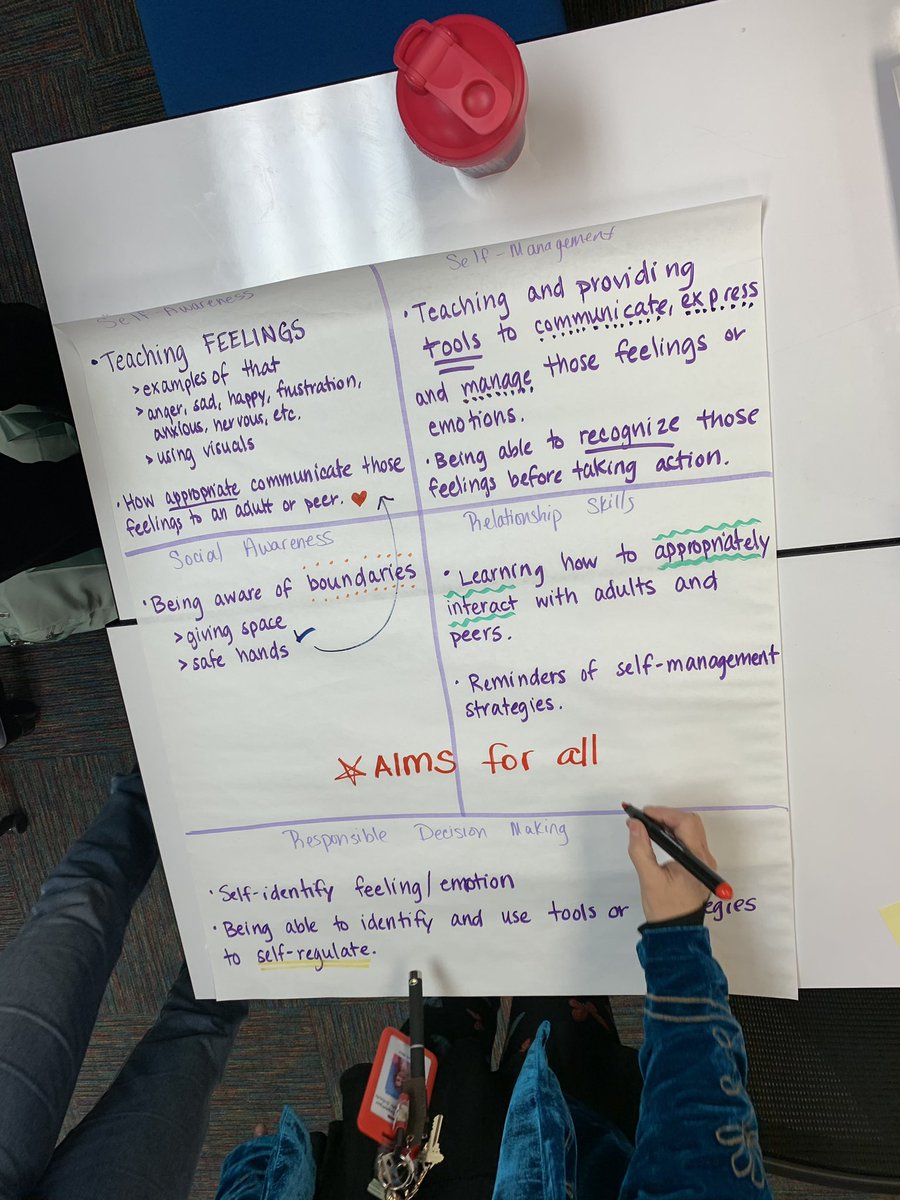 Self-Awareness
• Teaching FEELINGS
> examples of that
> anger, sad, happy, frustration,
anxious, nervous, etc.
> using visuals
• How appropriate communicate those
feelings to an adult or peer. ♥
Self-Management
• Teaching and providing
tools to communicate, express
and manage those feelings or
emotions.
• Being able to recognize those
feelings before taking action.
Social Awareness
• Being aware of boundaries
> giving space
> safe hands ✓
Relationship Skills
• Learning how to appropriately
interact with adults and
peers.
• Reminders of self-management
strategies.
☆ AIMS for all
Responsible Decision Making
• Self-identify feeling/emotion
• Being able to identify and use tools or
to self-regulate.